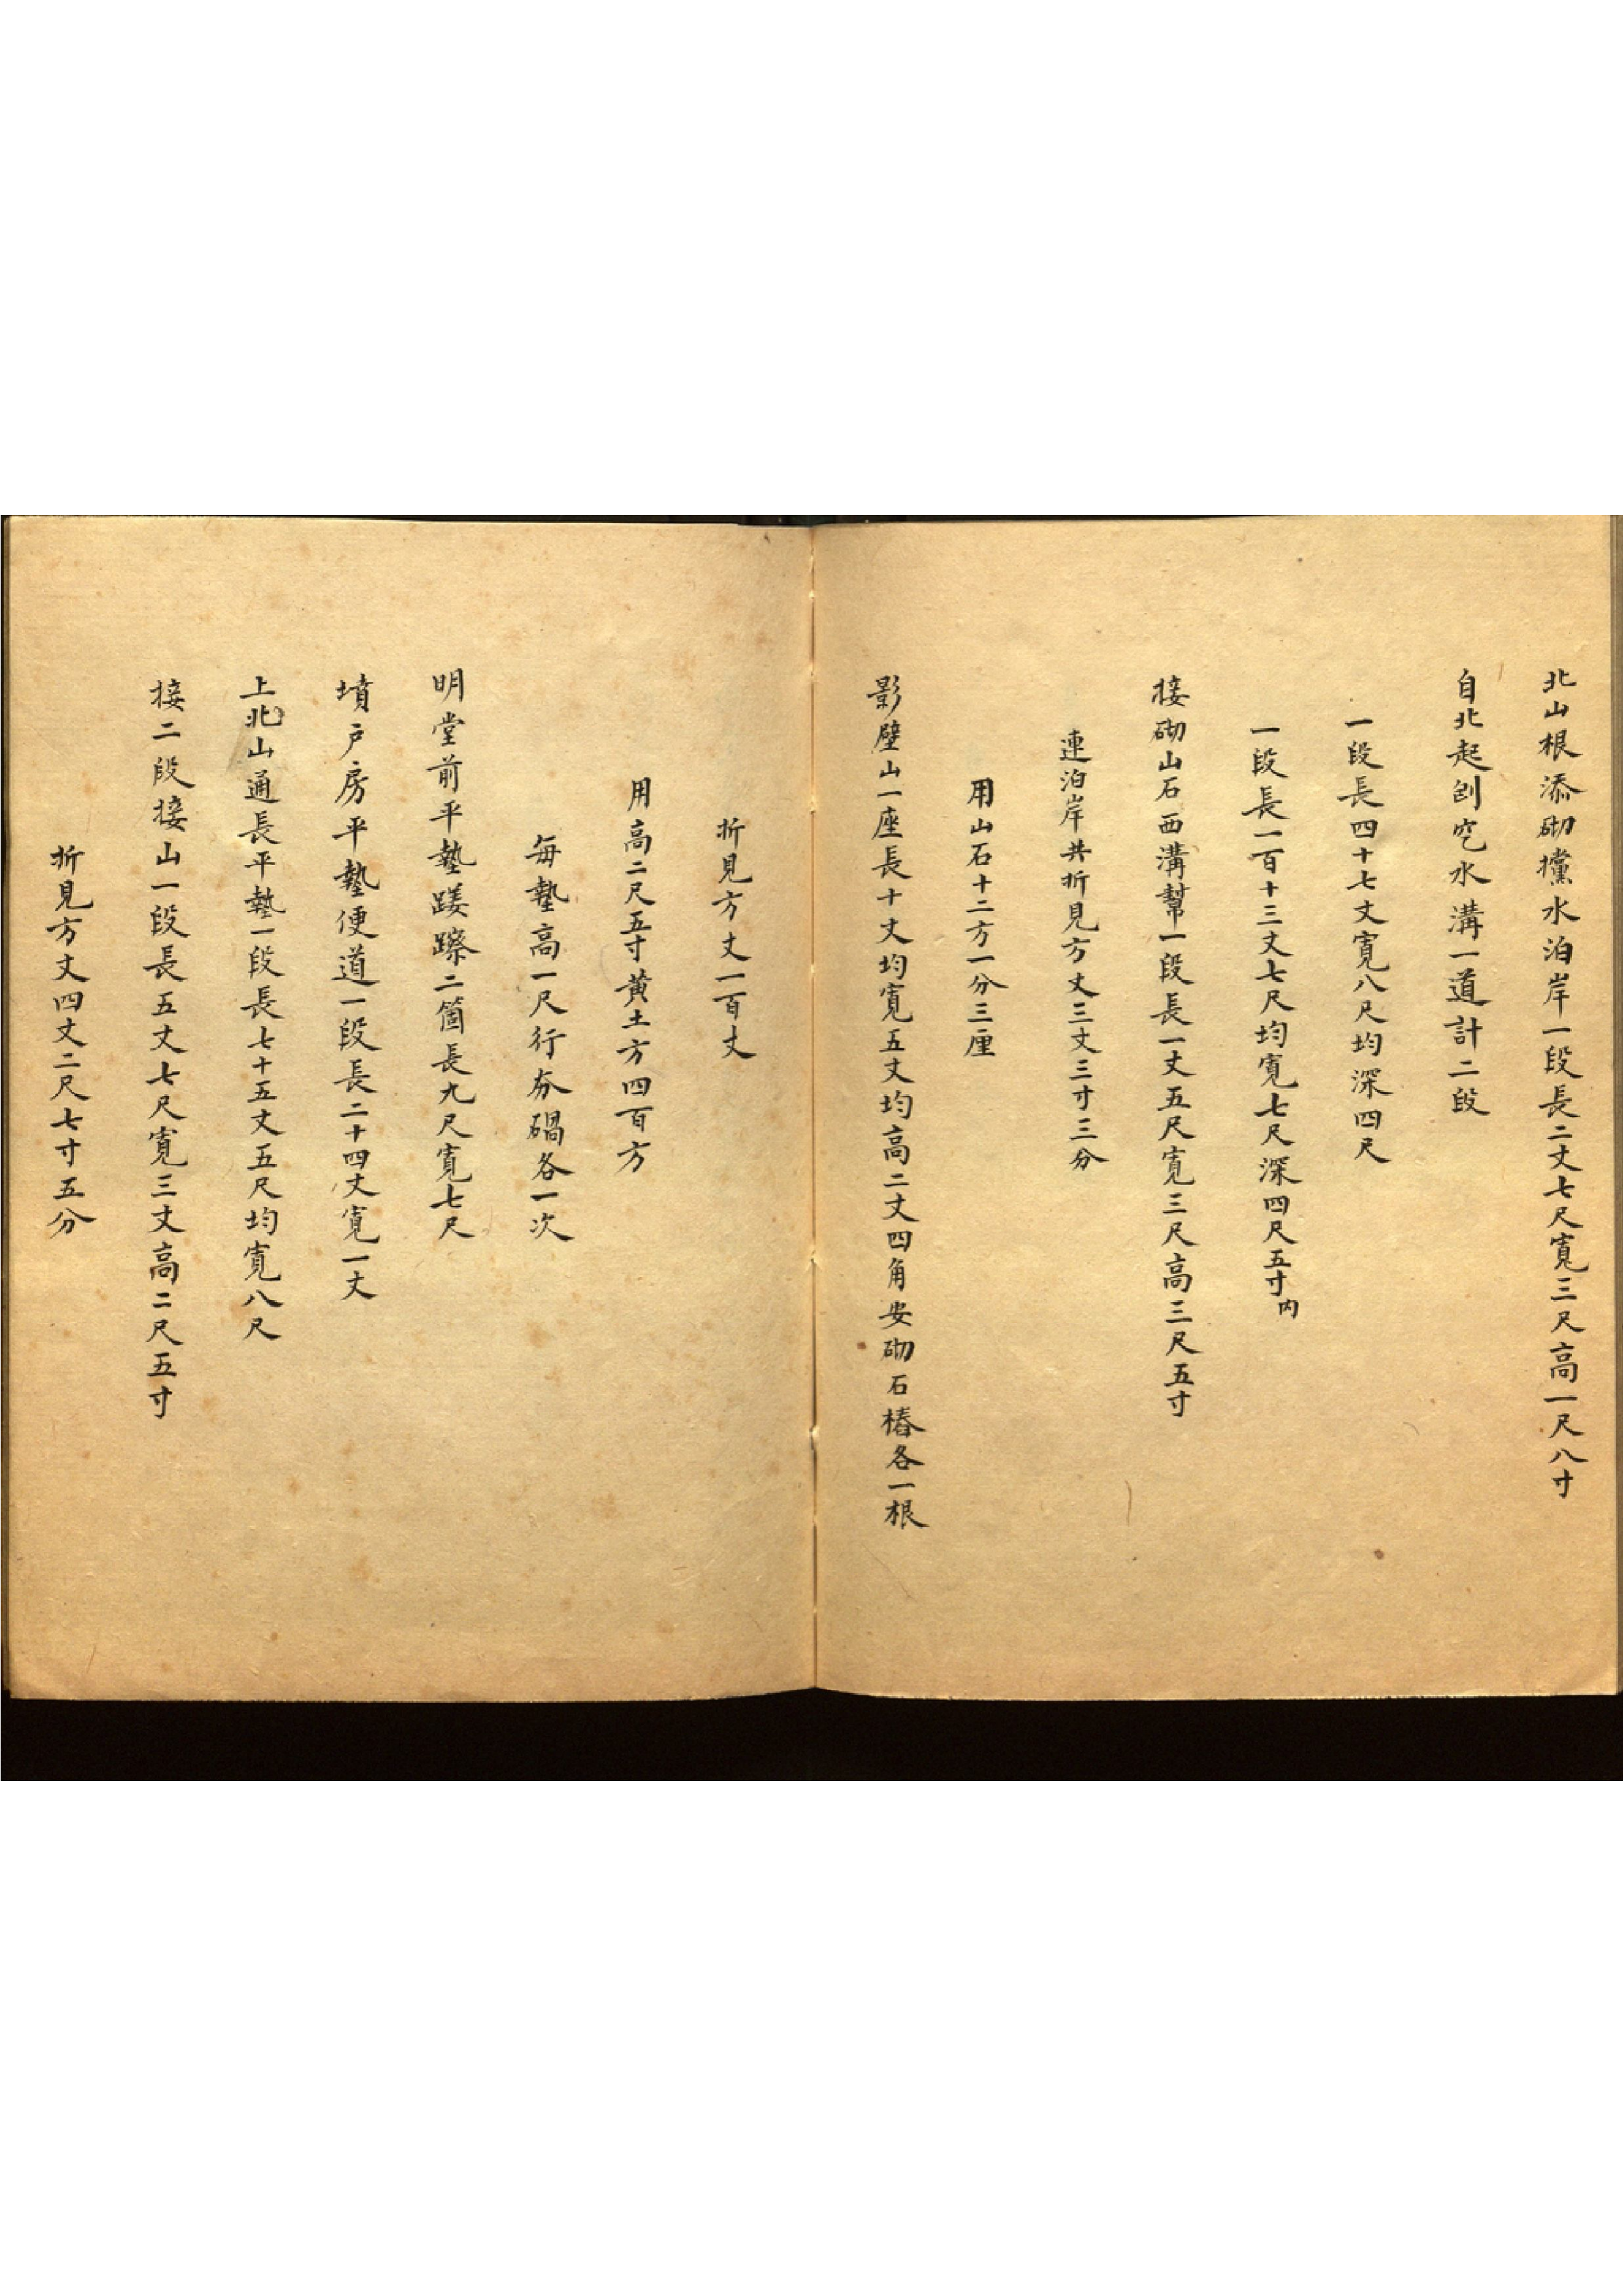 北山根添砌攩水泊岸一段長二丈七尺寬三尺高一尺八寸
自北起刨穵水溝一道計二段
一段長四十七丈寬八尺均深四尺
一段長一百十三丈七尺均寬七尺深四尺五寸內
接砌山石西溝幫一段長一丈五尺寬三尺高三尺五寸
連泊岸共折見方丈三丈三寸三分
用山石十二方一分三厘
影壁山一座長十丈均寬五丈均高二丈四角安砌石樁各一根
折見方丈一百丈
用高二尺五寸黃土方四百方
每墊高一尺行夯碢各一次
明堂前平墊踐蹽二箇長九尺寬七尺
墳戶房平墊便道一段長二十四丈寬一丈
上北山通長平墊一段長七十五丈五尺均寬八尺
接二段接山一段長五丈七尺寬三丈高二尺五寸
折見方丈四丈二尺七寸五分